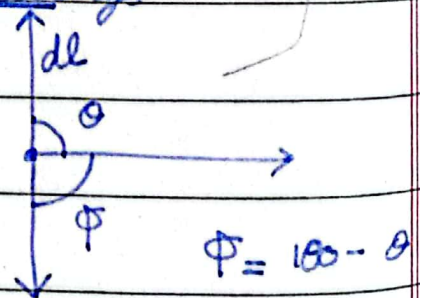 dl
θ
φ
φ = 180 - θ